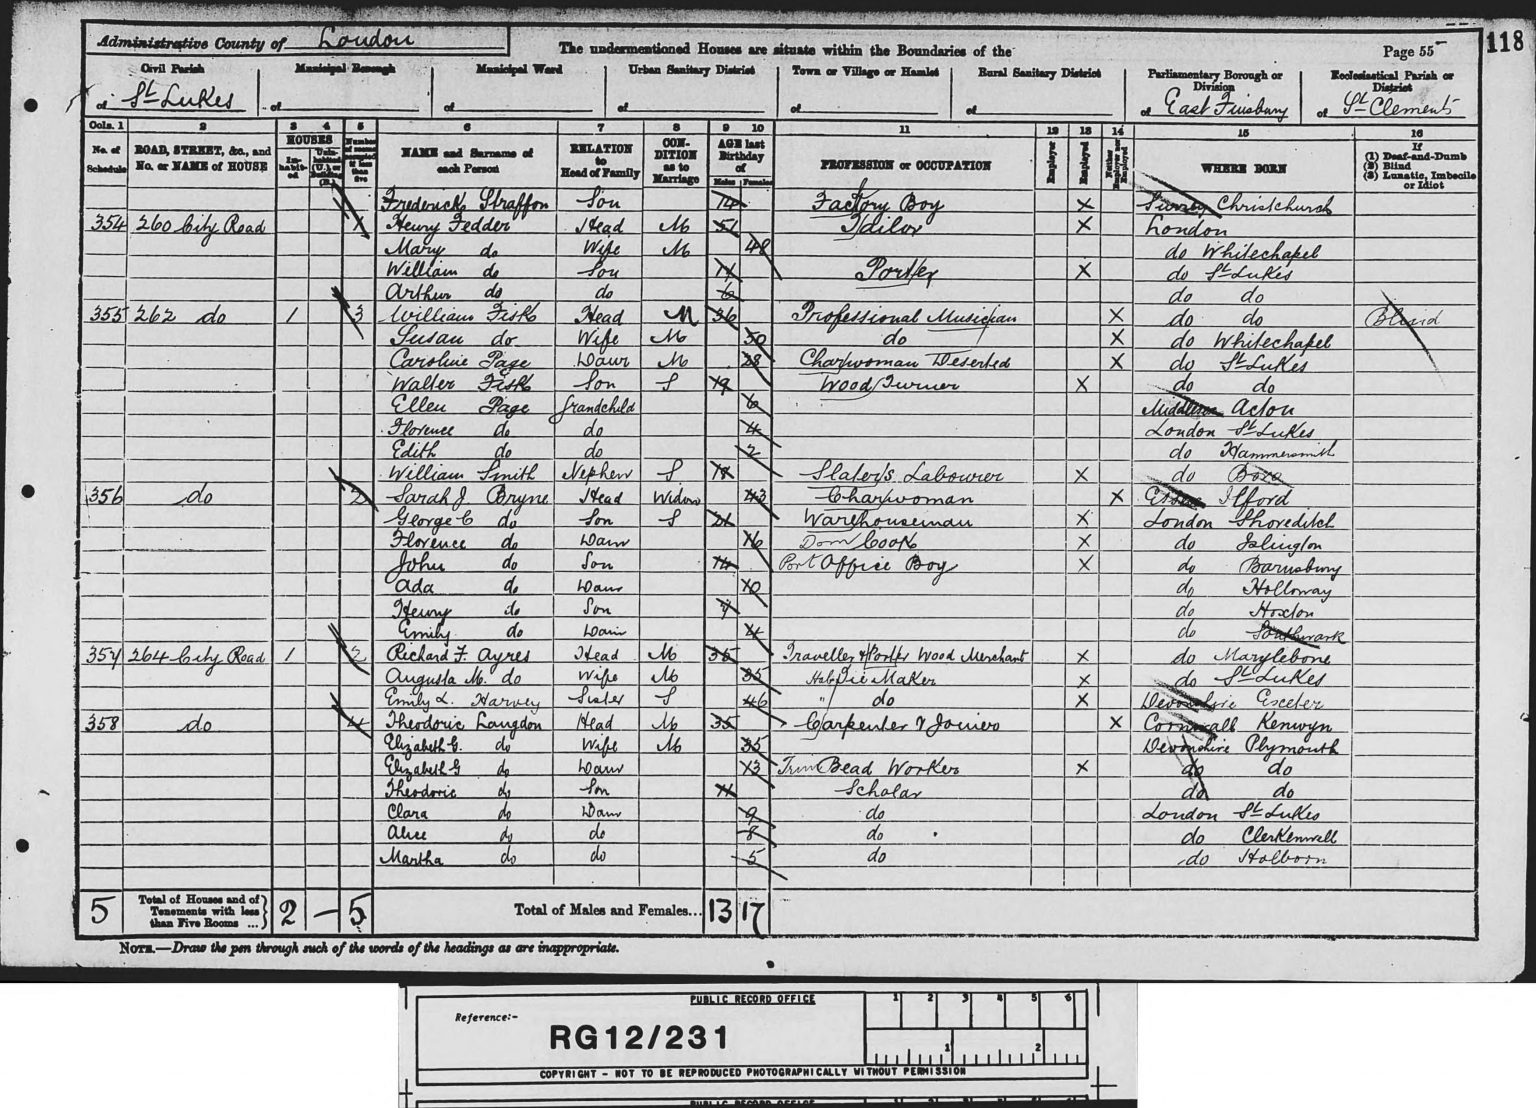 118
Administrative County of London
The undermentioned Houses are situate within the Boundaries of the
Page 55
Civil Parish
Municipal Borough
Municipal Ward
Urban Sanitary District
Town or Village or Hamlet
Rural Sanitary District
Parliamentary Borough or Division
Ecclesiastical Parish or District
of St Lukes
of
of
of
of
of
of East Finsbury
of St Clements
Cols. 1 2 3 4 5 6 7 8 9 10 11 12 13 14 15 16
No. of Schedule
ROAD, STREET, &c., and No. or NAME of HOUSE
HOUSES
Inhabited
Uninhabited (U.) or Building (B.)
Number of rooms occupied if less than five
NAME and Surname of each Person
RELATION to Head of Family
CONDITION as to Marriage
AGE last Birthday of
Males Females
PROFESSION or OCCUPATION
Employer
Employed
Neither Employer nor Employed
WHERE BORN
If
(1) Deaf-and-Dumb
(2) Blind
(3) Lunatic, Imbecile or Idiot
Frederick Straffon Son 14 Factory Boy X Surrey Christchurch
354 260 City Road Henry Fedder Head M 51 Tailor X London
Mary do Wife M 48 do Whitechapel
William do Son 14 Porter X do St Lukes
Arthur do do 6 do do
355 262 do 1 3 William Fisk Head M 36 Professional Musician X do do Blind
Susan do Wife M 50 do X do Whitechapel
Caroline Page Daur M 28 Charwoman Deserted X do St Lukes
Walter Fisk Son S 19 Wood Turner X do do
Ellen Page Grandchild 6 Middlesex Acton
Florence do do 4 London St Lukes
Edith do do 2 do Hammersmith
William Smith Nephew S 18 Slater's Labourer X do
356 do 2 Sarah J. Bryne Head Widow 43 Charwoman X Essex Ilford
George C do Son S 21 Warehouseman X London Shoreditch
Florence do Daur 16 Dom Cook X do Islington
John do Son 14 Post Office Boy X do Barnsbury
Ada do Daur 10 do Holloway
Henry do Son 7 do Hoxton
Emily do Daur 4 do Southwark
357 264 City Road 1 2 Richard F. Ayres Head M 35 Traveller & Porter Wood Merchant X do Marylebone
Augusta M. do Wife M 35 Tie Maker X do St Lukes
Emily L. Harvey Sister S 46 " do X Devonshire Exeter
358 do 4 Theodoric Langdon Head M 35 Carpenter & Joiner X Cornwall Kenwyn
Elizabeth G. do Wife M 35 Devonshire Plymouth
Elizabeth G do Daur 13 Bead Worker X do do
Theodoric do Son 11 Scholar do do
Clara do Daur 9 do London St Lukes
Alice do do 8 do do Clerkenwell
Martha do do 5 do do Holborn
5 Total of Houses and of Tenements with less than Five Rooms ... 2 — 5 Total of Males and Females... 13 17
NOTE.—Draw the pen through such of the words of the headings as are inappropriate.
PUBLIC RECORD OFFICE
1 2 3 4 5 6
Reference:-
RG12/231
1 2
COPYRIGHT - NOT TO BE REPRODUCED PHOTOGRAPHICALLY WITHOUT PERMISSION
PUBLIC RECORD OFFICE
1 2 3 4 5 6